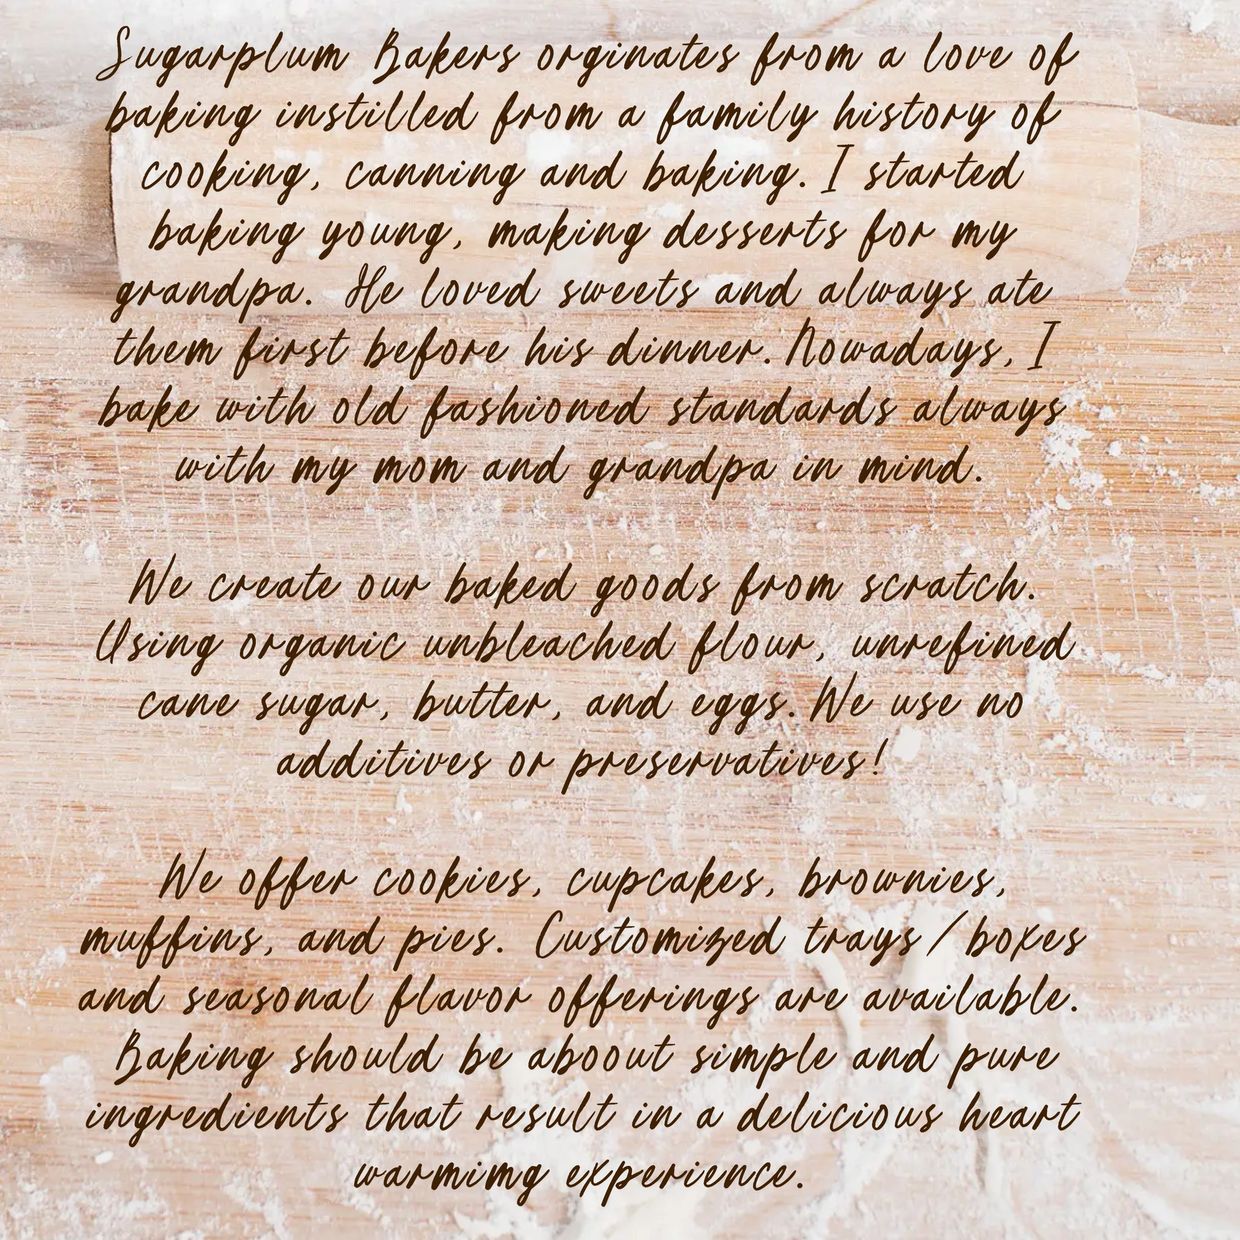 Sugarplum Bakers orginates from a love of
baking instilled from a family history of
cooking, canning and baking. I started
baking young, making desserts for my
grandpa. He loved sweets and always ate
them first before his dinner. Nowadays, I
bake with old fashioned standards always
with my mom and grandpa in mind.
We create our baked goods from scratch.
Using organic unbleached flour, unrefined
cane sugar, butter, and eggs. We use no
additives or preservatives!
We offer cookies, cupcakes, brownies,
muffins, and pies. Customized trays/boxes
and seasonal flavor offerings are available.
Baking should be aboout simple and pure
ingredients that result in a delicious heart
warmimg experience.